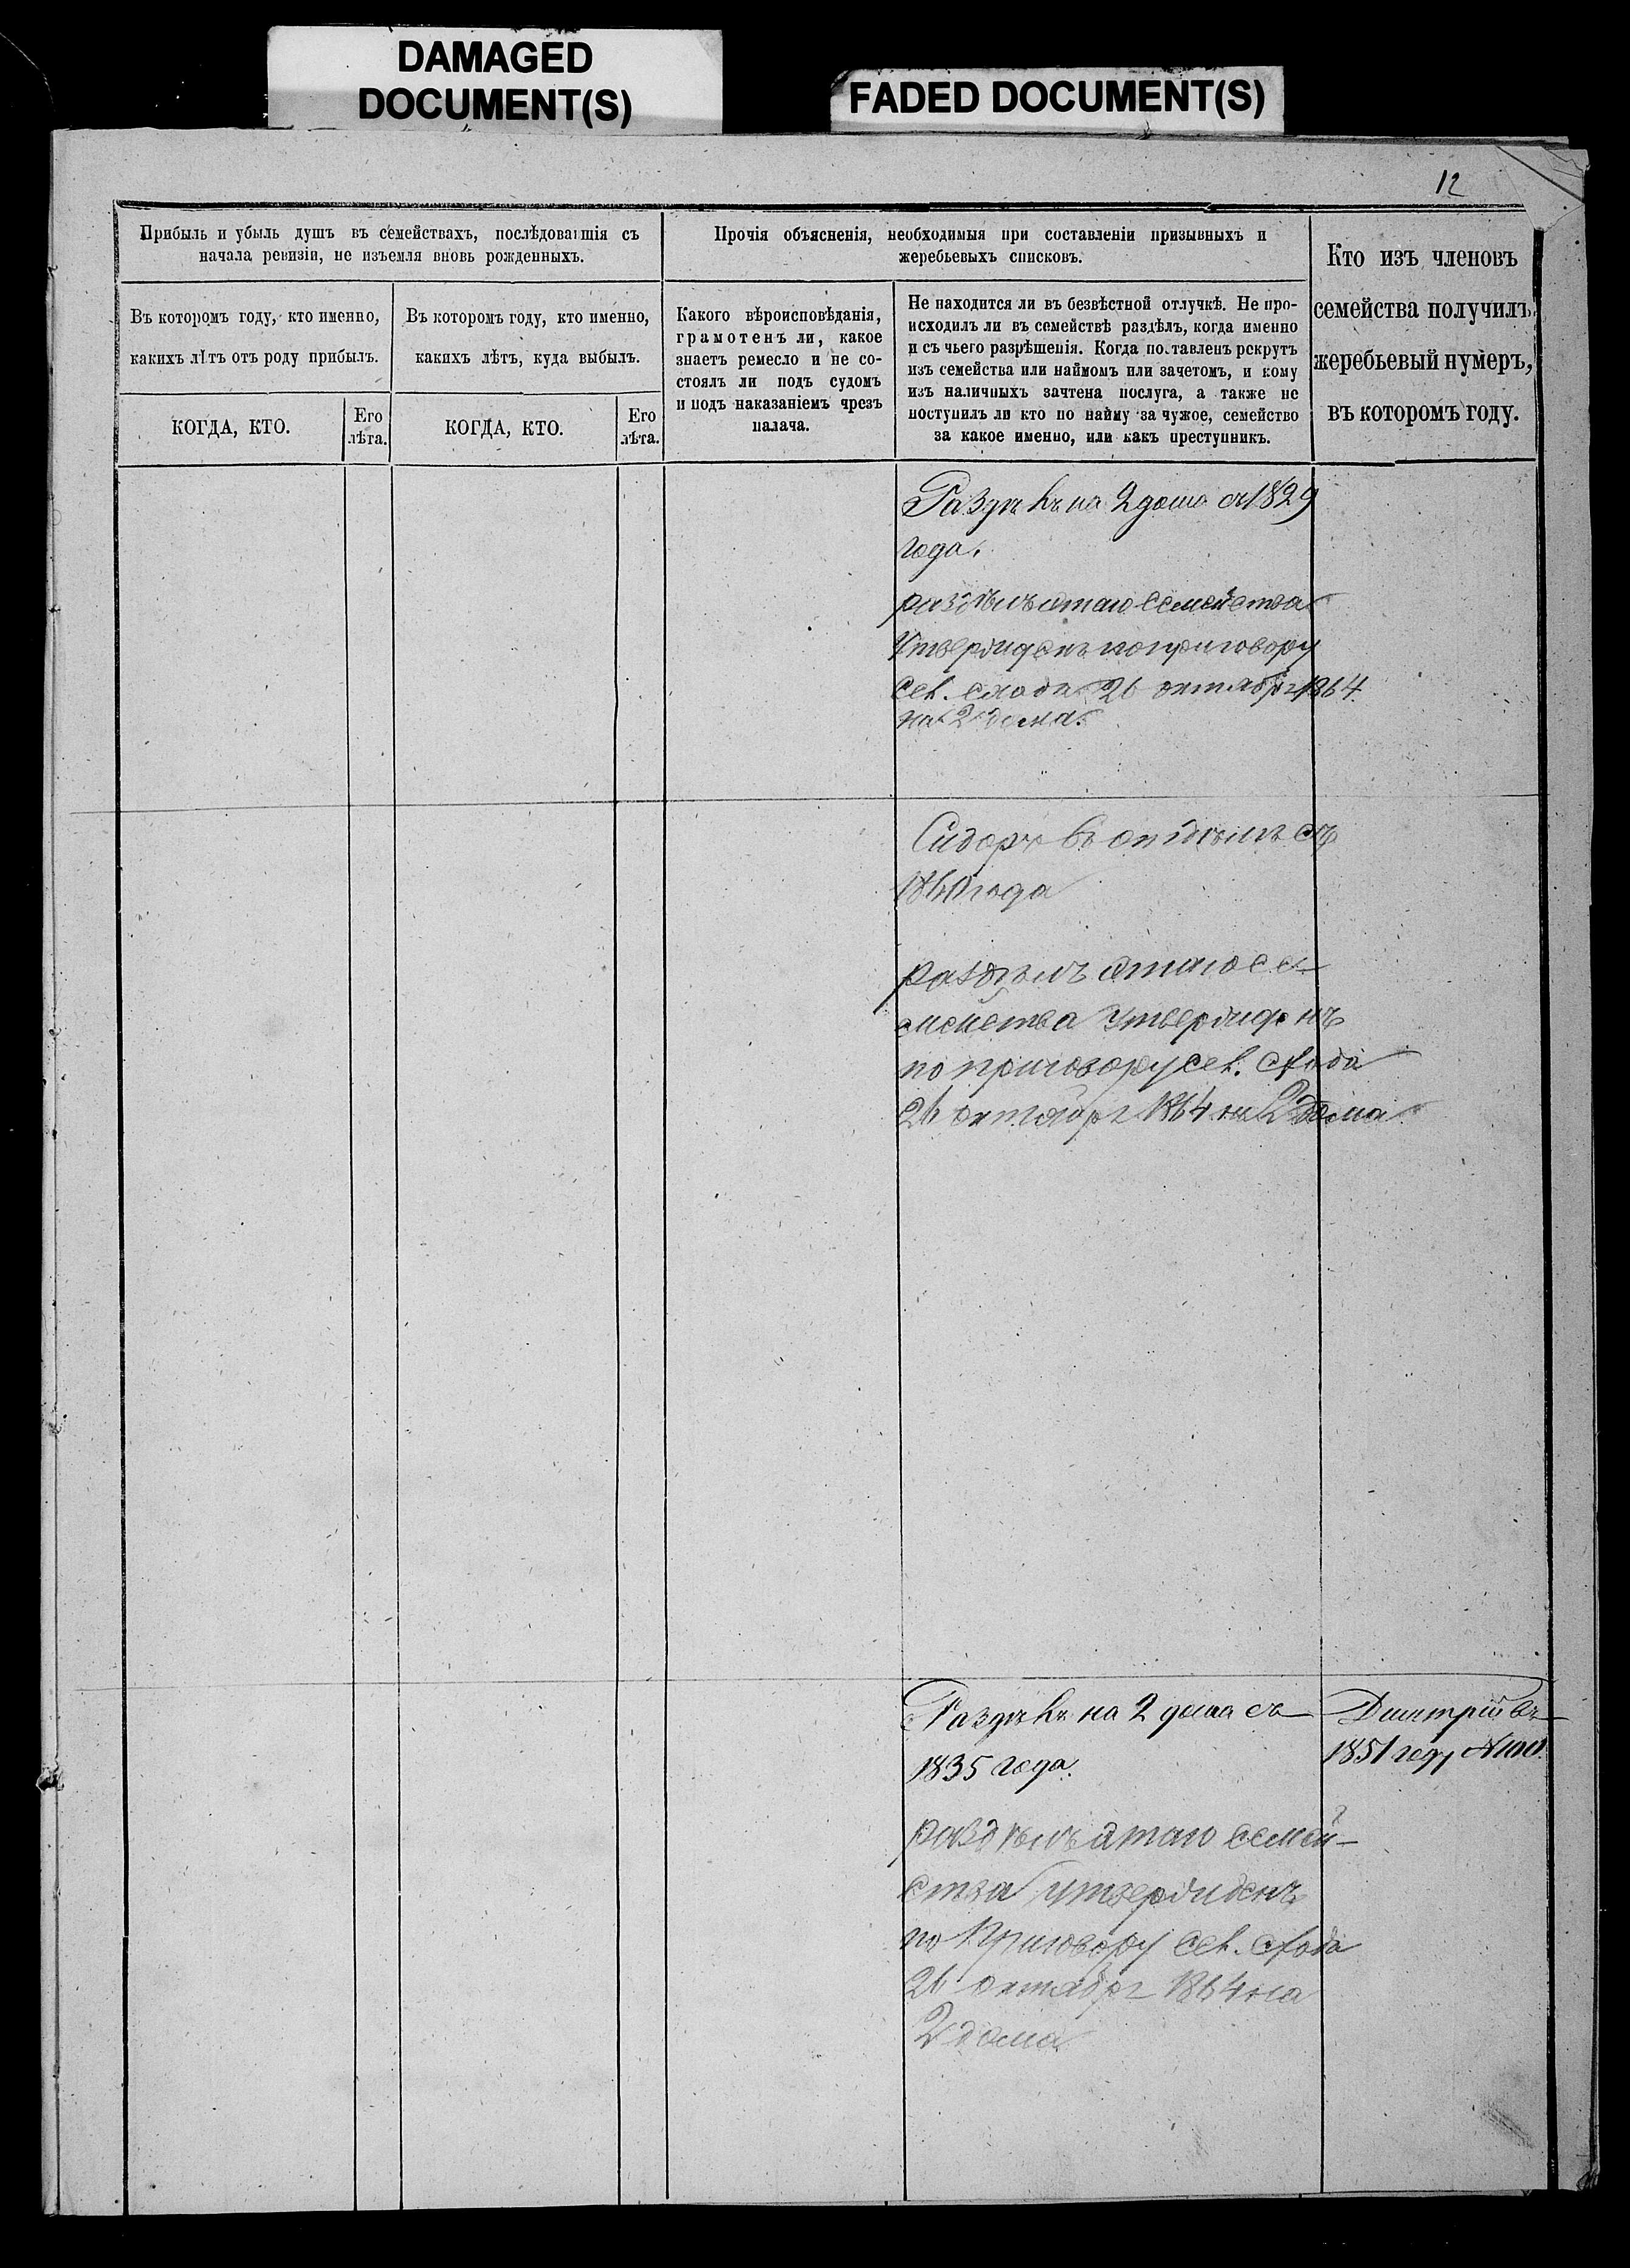 DAMAGED
DOCUMENT(S)
FADED DOCUMENT(S)
12
Прибыль и убыль душъ въ семействахъ, послѣдовавшія съ
начала ревизіи, не изъемля вновь рожденныхъ.
Въ которомъ году, кто именно,
какихъ лѣтъ отъ роду прибылъ.
КОГДА, КТО.
Его
лѣта.
Въ которомъ году, кто именно,
какихъ лѣтъ, куда выбылъ.
КОГДА, КТО.
Его
лѣта.
Прочія объясненія, необходимыя при составленіи призывныхъ и
жеребьевыхъ списковъ.
Какого вѣроисповѣданія,
грамотенъ ли, какое
знаетъ ремесло и не со-
стоялъ ли подъ судомъ
и подъ наказаніемъ чрезъ
палача.
Не находится ли въ безвѣстной отлучкѣ. Не про-
исходилъ ли въ семействѣ раздѣлъ, когда именно
и съ чьего разрѣшенія. Когда поставленъ рекрутъ
изъ семейства или наймомъ или зачетомъ, и кому
изъ наличныхъ зачтена послуга, а также не
поступилъ ли кто по найму за чужое, семейство
за какое именно, или какъ преступникъ.
Кто изъ членовъ
семейства получилъ
жеребьевый нумеръ,
въ которомъ году.
Раздѣлъ на 2 дома съ 1829
года.
раздѣлъ этаго семейства
утвержденъ по приговору
сел. схода 26 октября 1864
на 2 дома.
Сидоръ въ отдѣлѣ съ
1860 года
раздѣлъ этаго се
мейства утвержденъ
по приговору сел. схода
26 октября 1864 на 2 дома
Раздѣлъ на 2 дома съ
1835 года.
Дмитрій въ
1851 году №100
раздѣлъ этаго семей-
ства утвержденъ
по приговору сел. схода
26 октября 1864 на
2 дома